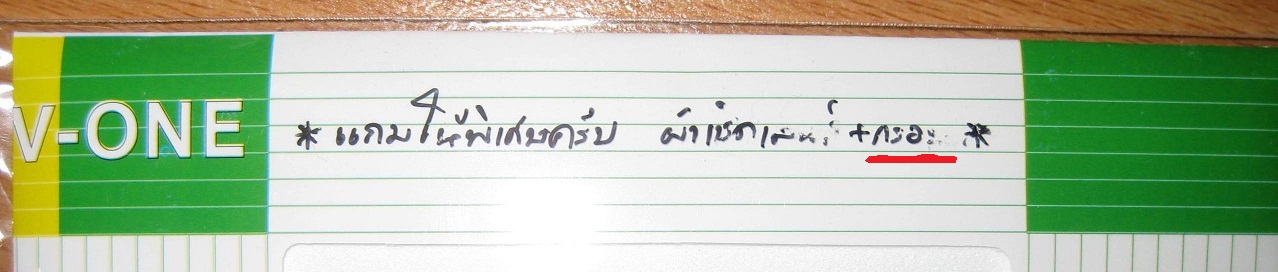 V-ONE
* แถมให้พิเศษครับ ผ้าเช็ดเลนส์ + *